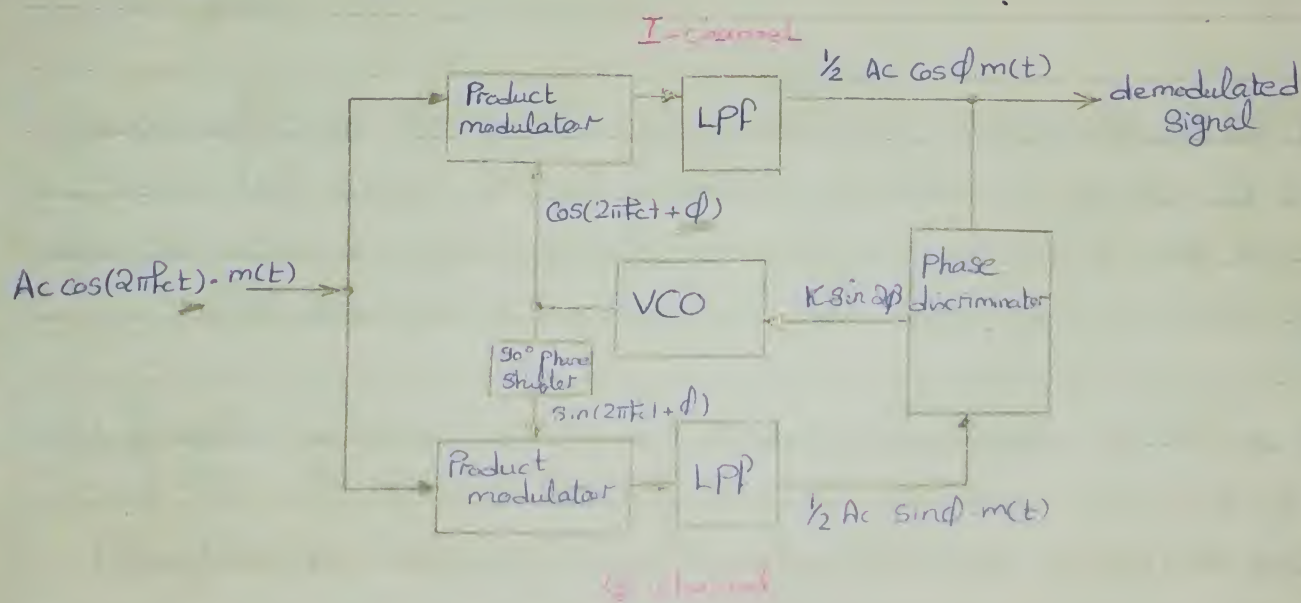 I-channel
½ Ac cosϕ m(t)
Product
modulator
LPf
demodulated
Signal
cos(2πfct + ϕ)
Ac cos(2πfct). m(t)
VCO
K sin 2ϕ
Phase
discriminator
90° Phase
Shifter
sin(2πfct + ϕ)
Product
modulator
LPf
½ Ac sinϕ m(t)
channel